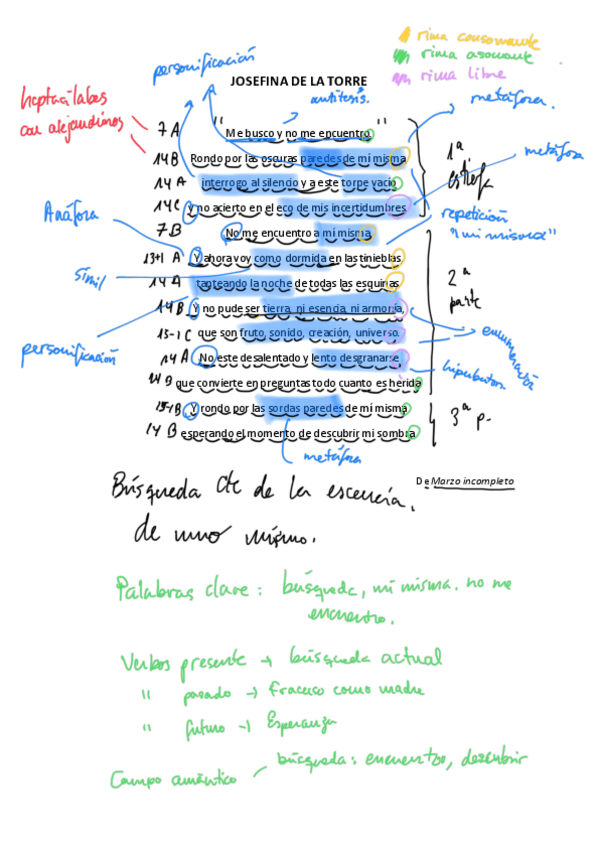 rima consonante
rima asonante
rima libre
personificación
JOSEFINA DE LA TORRE
antítesis.
metáfora.
heptasílabos
con alejandrinos
7 A
" Me busco y no me encuentro "
14 B Rondo por las oscuras paredes de mí misma
1ª estrofa
metáfora
14 A interrogo al silencio y a este torpe vacío
14 C y no acierto en el eco de mis incertidumbres.
repetición
"mi misma"
7 B No me encuentro a mí misma
Anáfora
13+1 A Y ahora voy como dormida en las tinieblas
símil
14 A tanteando la noche de todas las esquinas
2ª parte
14 B Y no pude ser tierra, ni esencia, ni armonía,
15-1 C que son fruto, sonido, creación, universo.
enumeración
personificación
14 A No este desalentado y lento desgranarse,
14 B que convierte en preguntas todo cuanto es herida
15-1 B Y rondo por las sordas paredes de mí misma
3ª p-
14 B esperando el momento de descubrir mi sombra
metáfora
De Marzo incompleto
Búsqueda de de la esencia.
de uno mismo.
Palabras clave: búsqueda, mi misma. no me
encuentro.
Verbos presente → búsqueda actual
" pasado → Fracaso como madre
" futuro → Esperanza
búsqueda: encuentro, descubrir
Campo semántico